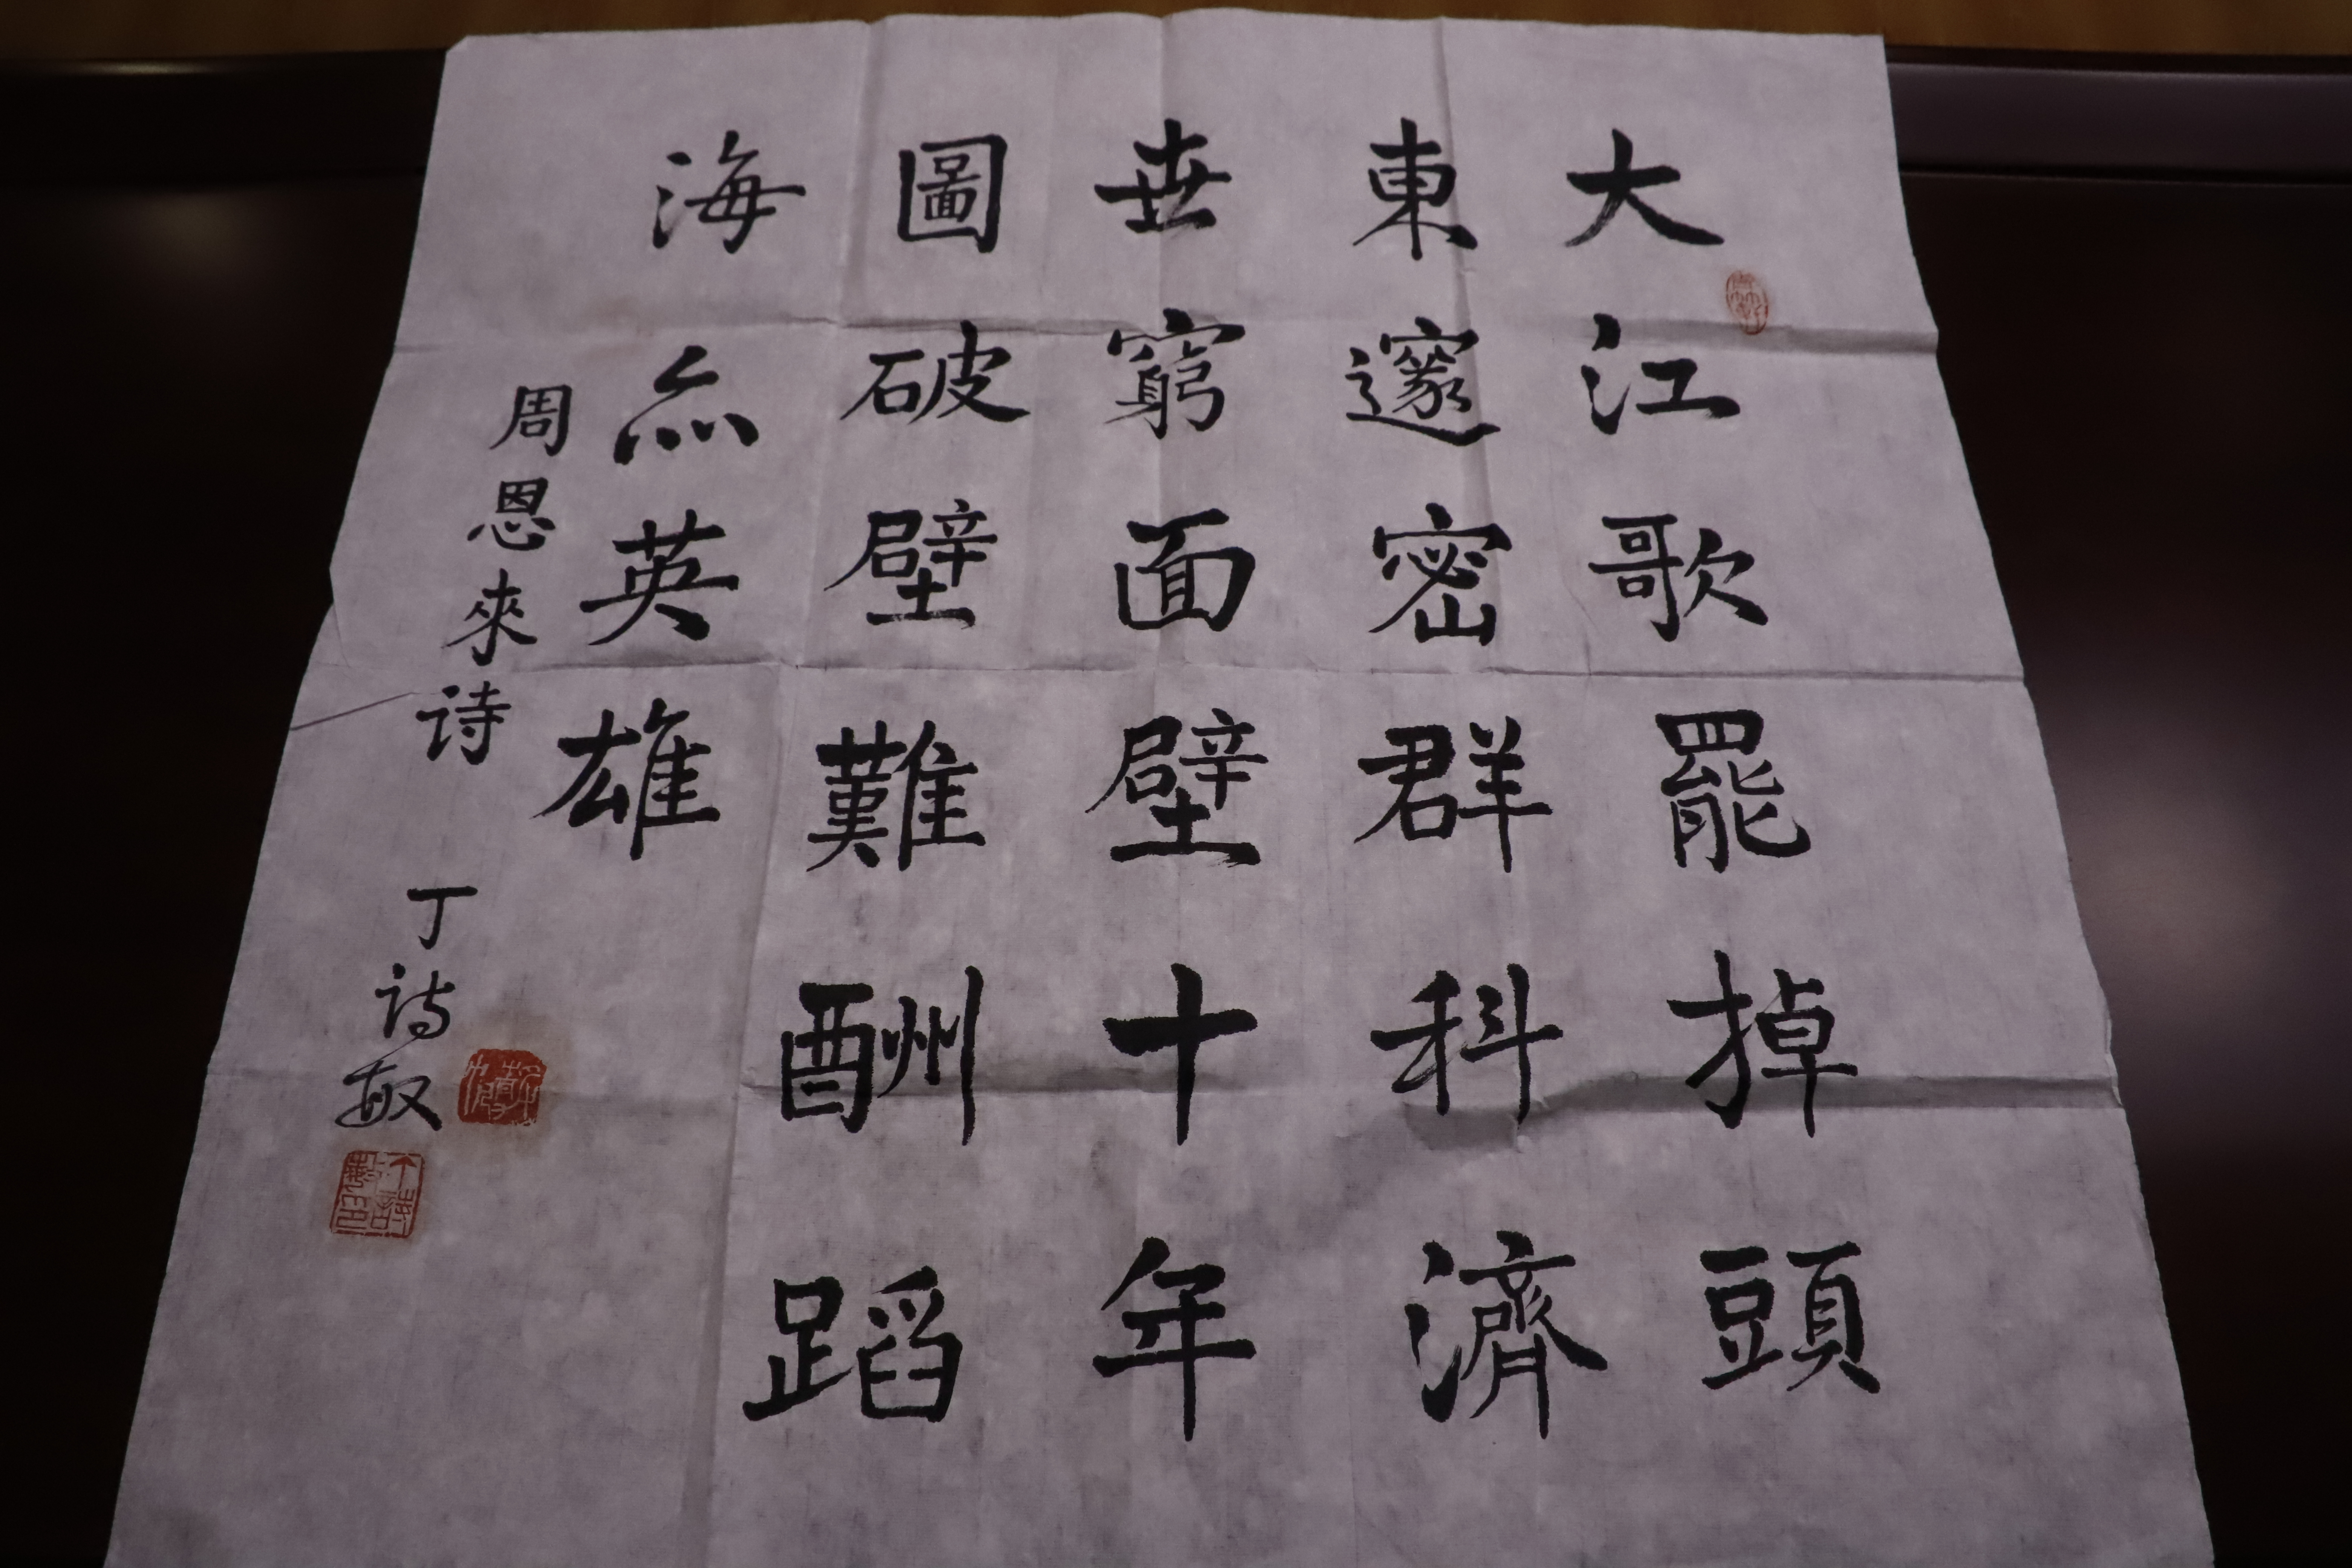 大江歌罷掉頭
東邃密群科濟
世窮面壁十年
圖破壁難酬蹈
海亦英雄
周恩來诗 丁诗敏